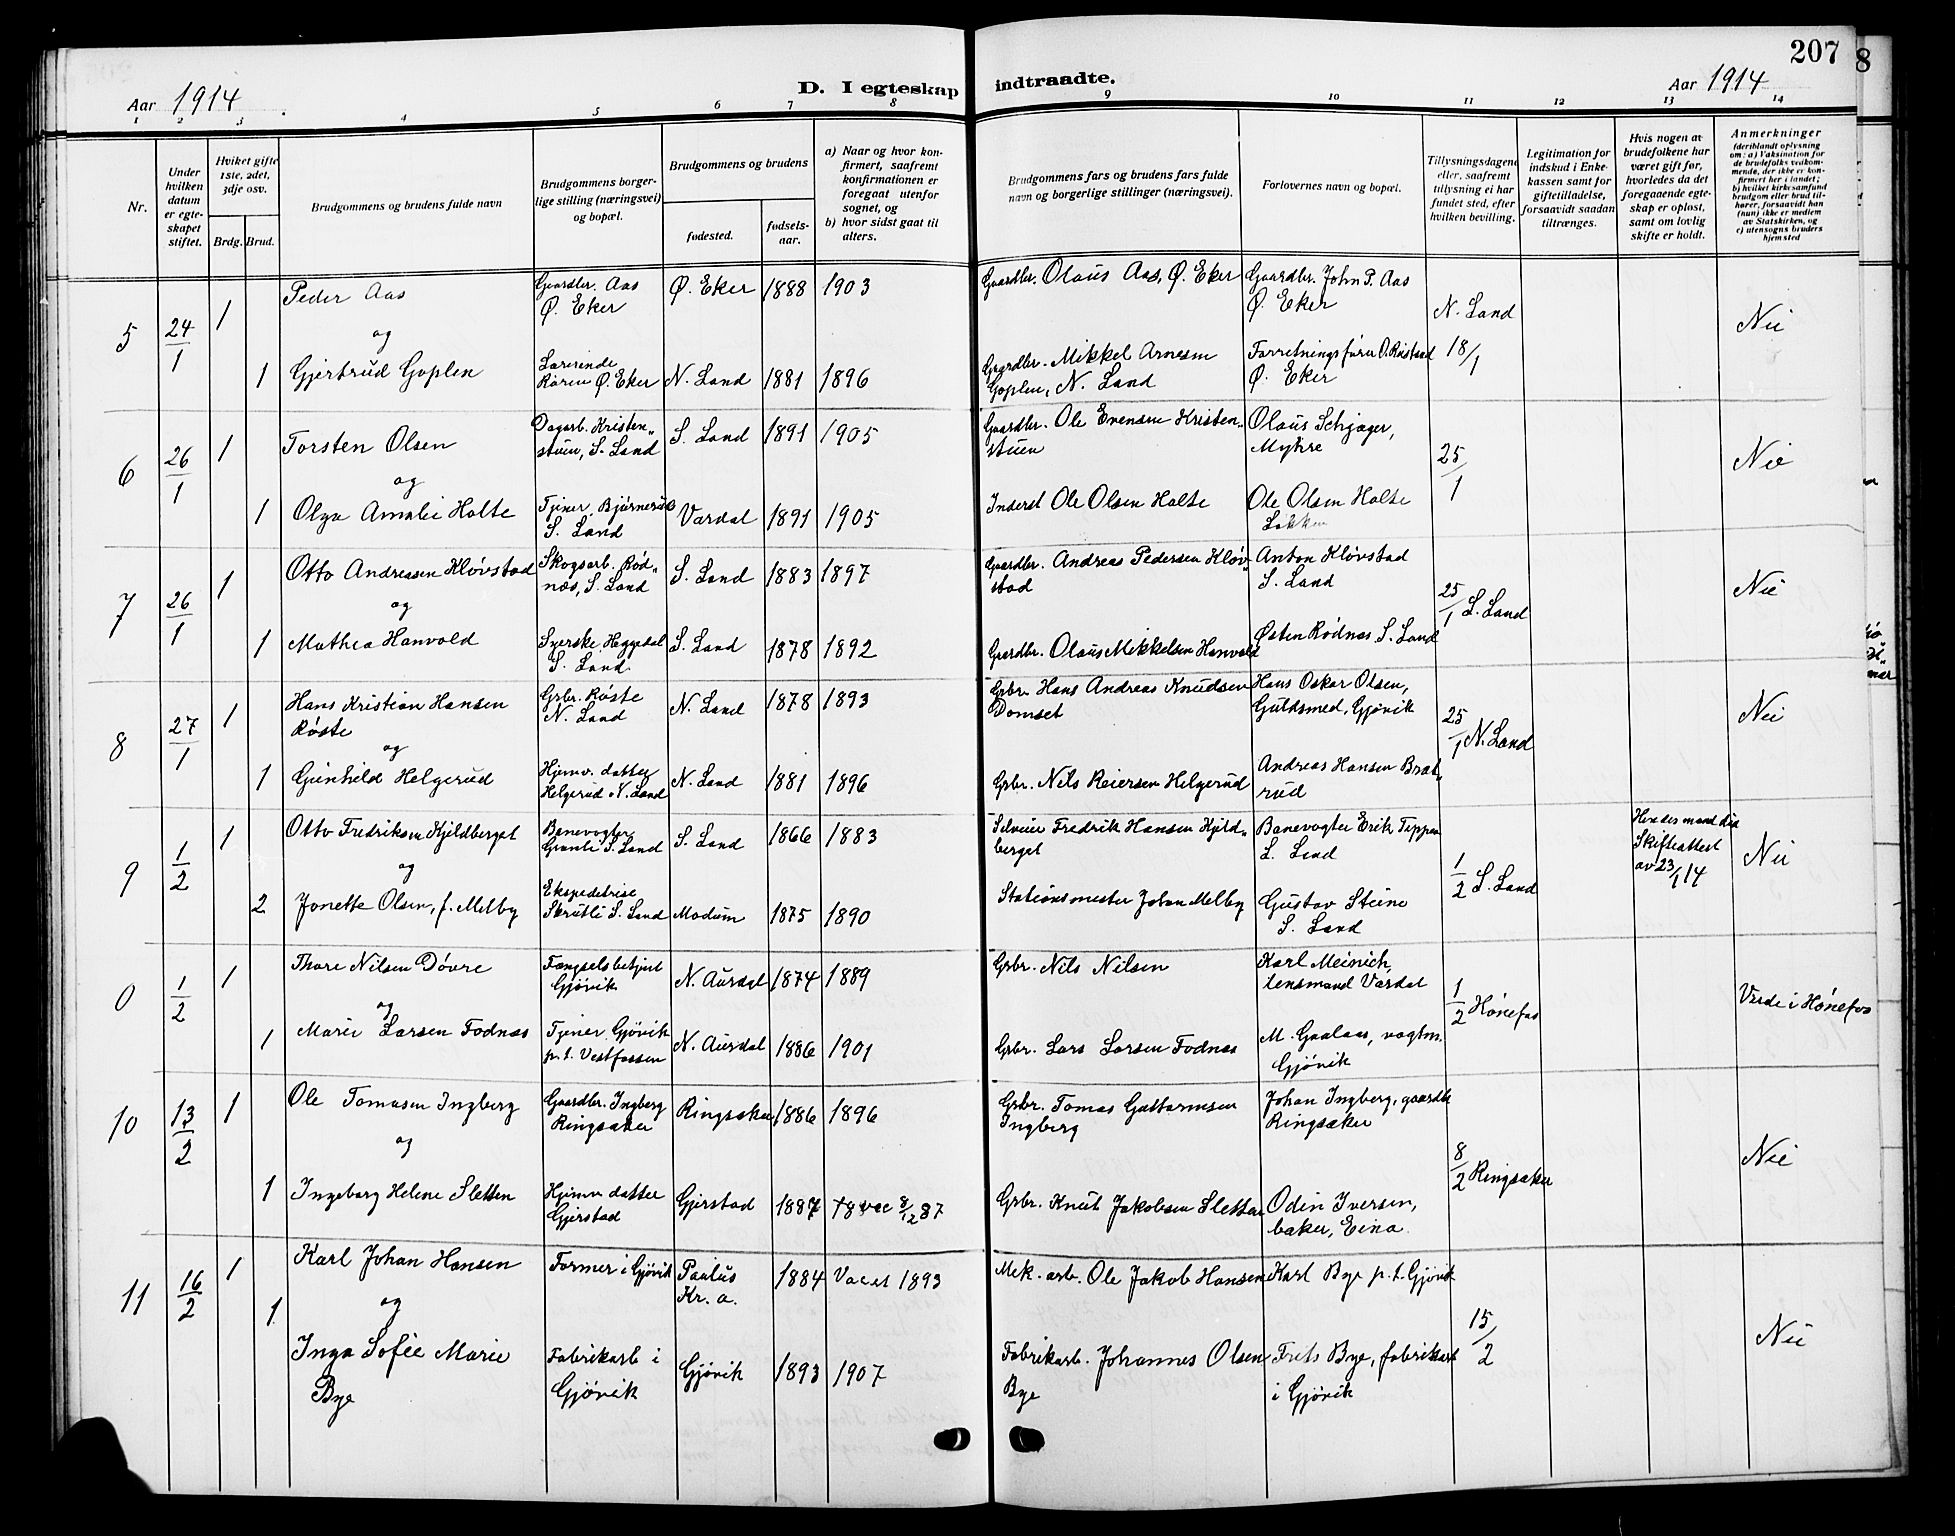 207
8
Aar 1914
D. I egteskap indtraadte.
Aar 1914
1 2 3 4 5 6 7 8 9 10 11 12 13 14
Nr.
Under hvilken datum er egteskapet stiftet.
Hvilket gifte 1ste, 2det, 3dje osv.
Brdg. Brud.
Brudgommens og brudens fulde navn
Brudgommens borgerlige stilling (næringsvei) og bopæl.
Brudgommens og brudens
fødested.
fødselsaar.
a) Naar og hvor konfirmert, saafremt konfirmationen er foregaat utenfor sognet, og
b) hvor sidst gaat til alters.
Brudgommens fars og brudens fars fulde navn og borgerlige stillinger (næringsvei).
Forlovernes navn og bopæl.
Tillysningsdagene eller, saafremt tillysning ei har fundet sted, efter hvilken bevilling.
Legitimation for indskud i Enkekassen samt for giftetilladelse, forsaavidt saadan tiltrænges.
Hvis nogen av brudefolkene har været gift før, hvorledes da det foregaaende egteskap er opløst, samt om lovlig skifte er holdt.
Anmerkninger (deriblandt oplysning om: a) Vaksination for de brudefolks vedkommende, der ikke er konfirmert her i landet; b) hvilket kirkesamfund brudgom eller brud tilhører, forsaavidt han (hun) ikke er medlem av Statskirken, og c) utensogns bruders hjemsted
5 24/1 1 Peder Aas Gaardbr. Aas Ø. Eker Ø. Eker 1888 1903 Gaardbr. Olaus Aas, Ø. Eker Gaardbr. John P. Aas Ø. Eker N. Land 18/1 Nei
og
1 Gjertrud Goplen Lærerinde Røren Ø. Eker N. Land 1881 1896 Gaardbr. Mikkel Arnesen Goplen, N. Land Forretningsfører O. Røstaad Ø. Eker
6 26/1 1 Torsten Olsen Dagarb. Kristenstuen, S. Land S. Land 1891 1905 Gaardbr. Ole Evensen Kristenstuen Olaus Schjager, Myhre 25/1 Nei
og
1 Olga Amalie Holte Tjener, Bjørnerud S. Land Vardal 1891 1905 Inderst Ole Olsen Holte Ole Olsen Holte Løkken
7 26/1 1 Otto Andreasen Kløvstad Skogsarb. Rødnæs, S. Land S. Land 1883 1897 Gaardbr. Andreas Pedersen Kløvstad Anton Kløvstad S. Land 25/1 S. Land Nei
og
1 Mathea Hanvold Syerske, Heggedal S. Land S. Land 1878 1892 Gaardbr. Olaus Mikkelsen Hanvold Østen Rødnæs S. Land
8 27/1 1 Hans Kristian Hansen Røste Grbr. Røste N. Land N. Land 1878 1893 Grbr. Hans Andreas Knudsen Domset Hans Oskar Olsen, Guldsmed, Gjøvik 25/1 N. Land Nei
og
1 Gunhild Helgerud Hjemv. datter Helgerud N. Land N. Land 1881 1896 Grbr. Nils Reiersen Helgerud Andreas Hansen Bratrud
9 1/2 1 Otto Fredriksen Kjeldberget Banevogter Granli S. Land S. Land 1866 1883 Selveier Fredrik Hansen Kjeldberget Banevogter Erik Teppen S. Land 1/2 S. Land Hendes mand død Skifteattest av 23/1 14 Nei
og
2 Jonette Olsen, f. Melby Ekspeditrise Skrutli S. Land Modum 1875 1890 Stationsmester Johan Melby Gustav Steine S. Land
0 1/2 1 Thore Nilsen Dövre Fængselsbetjent Gjøvik N. Aurdal 1874 1889 Grbr. Nils Nilsen Karl Meinich, lensmand Vardal 1/2 Hønefos Viede i Hønefos
og
1 Marie Larsen Fodnæs Tjener, Gjøvik p.t. Vestfossen N. Aurdal 1886 1901 Grbr. Lars Larsen Fodnæs M. Gaalaas, vagtm. Gjøvik
10 13/2 1 Ole Tomasen Ingberg Gaardbr. Ingberg Ringsaker Ringsaker 1886 1896 Grbr. Tomas Guttormsen Ingberg Johan Ingberg, gaardbr. Ringsaker 8/2 Ringsaker Nei
og
1 Ingeborg Helene Sletten Hjemv datter Gjerstad Gjerstad 1887 8/12 87 Grbr. Knut Jakobsen Sletten Odin Iversen, baker, Eina.
11 16/2 1 Karl Johan Hansen Former i Gjøvik Paulus Kr. a. 1884 1893 Mek. arb. Ole Jakob Hansen Karl Bye p.t. Gjøvik 15/2 Nei
og
1 Inga Sofie Marie Bye Fabrikarb i Gjøvik Gjøvik 1893 1907 Fabrikarb. Johannes Olsen Bye Frits Bye, fabrikarb i Gjøvik